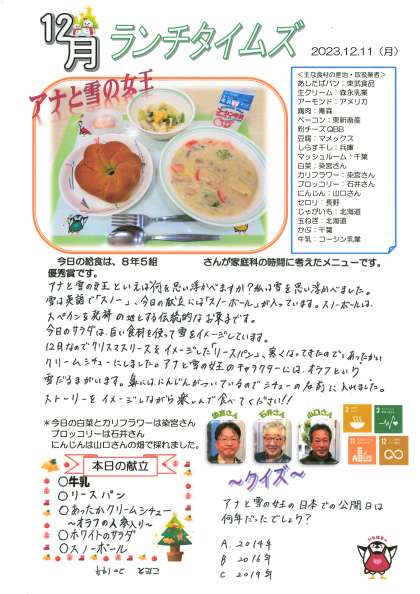 12月 ランチタイムズ
2023.12.11（月）
アナと雪の女王
＜主な食材の産地・取扱業者＞
あしたばパン：東武食品
生クリーム：森永乳業
アーモンド：アメリカ
鶏肉：青森
ベーコン：東新畜産
粉チーズQBB
豆腐：マメックス
しらす干し：兵庫
マッシュルーム：千葉
白菜：染宮さん
カリフラワー：染宮さん
ブロッコリー：石井さん
にんじん：山口さん
セロリ：長野
じゃがいも：北海道
玉ねぎ：北海道
かぶ：千葉
牛乳：コーシン乳業
今日の給食は、８年５組　　　　さんが家庭科の時間に考えたメニューです。
優秀賞です。
アナと雪の女王といえば何を思い浮かべますか？私は雪を思い浮かべました。
雪は英語で「スノー」、今日の献立には「スノーボール」が入っています。スノーボールは、
スペインを発祥の地とする伝統的なお菓子です。
今日のサラダは、白い食材を使って雪をイメージしています。
12月なのでクリスマスリースをイメージした「リースパン」、寒くなってきたので、あったかい
クリームシチューにしました。アナと雪の女王のキャラクターには、オラフという
雪だるまがいます。鼻にはにんじんがついているのでシチューの名前に入れました。
ストーリーをイメージしながら楽しんで食べてください!!
＊今日の白菜とカリフラワーは染宮さん
ブロッコリーは石井さん
にんじんは山口さんの畑で採れました。
染宮さん 石井さん 山口さん
2 3
12
本日の献立
○牛乳
○リースパン
○あったかクリームシチュー
～オラフの人参入り～
○ホワイトのサラダ
○スノーボール
～クイズ～
アナと雪の女王の日本での公開日は
何年だったでしょう？
A. 2014年
B 2016年
C 2019年